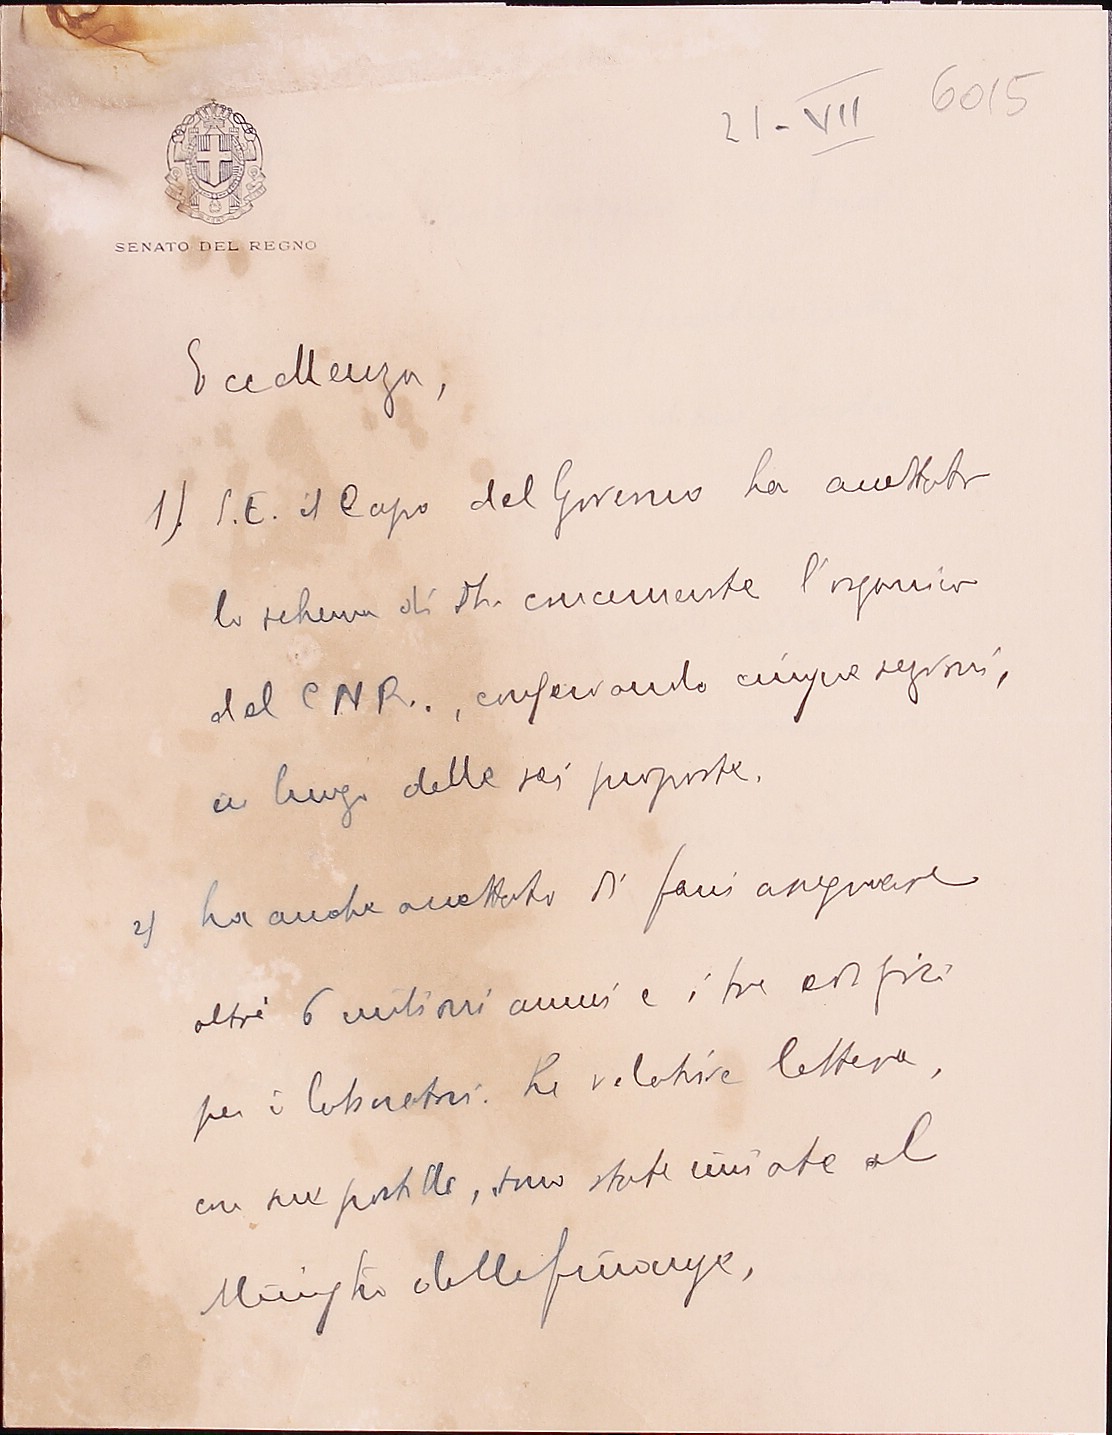 21-VII 6015
SENATO DEL REGNO
Eccellenza,
1). S.E. il Capo del Governo ha accettato
lo schema di concernente l'organico
del CNR., conservando cinque sezioni,
in luogo delle sei proposte.
2) ha anche accettato di farci assegnare
altri 6 milioni annui e i tre edifizi
per i laboratori. Le relative lettere,
con sue postille, sono state inviate al
Ministro delle finanze,